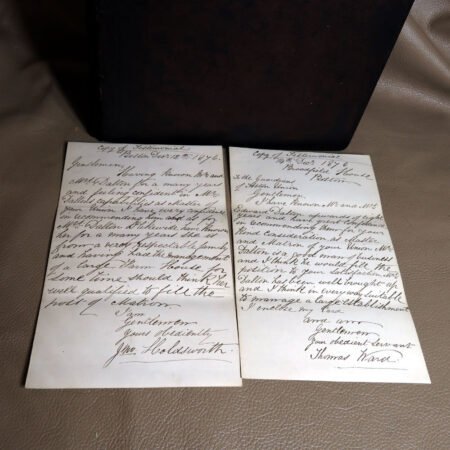 Copy of Testimonial
Dec 12th 1876
Gentlemen
Having known Mr and
Mrs Dalton for a many years
and feeling confident of Mr
Daltons capabilities as Master of
your Union I have very confidence
in recommending him as
Mrs Dalton I have known
her for a many years she comes
from a very respectable family
and having had the management
of a large Farm house for
some time should think her
well qualified to fill the
post of Matron
I am
Gentlemen
yours obediently
Jno. Holdsworth
Copy of Testimonial
Decr 1876
House
To the Guardians
of Union
Gentlemen
I have known Mr and Mrs
Edward Dalton upwards of eight
years and have
in recommending them for your
kind consideration as Master
and Matron of your Union Mr
Dalton is a good man of business
and I think he would fill the
position to your satisfaction Mrs
Dalton has been well brought up
and I think in every way suitable
to manage a large establishment
I enclose my Card
and am
Gentlemen
your obedient servant
Thomas Ward